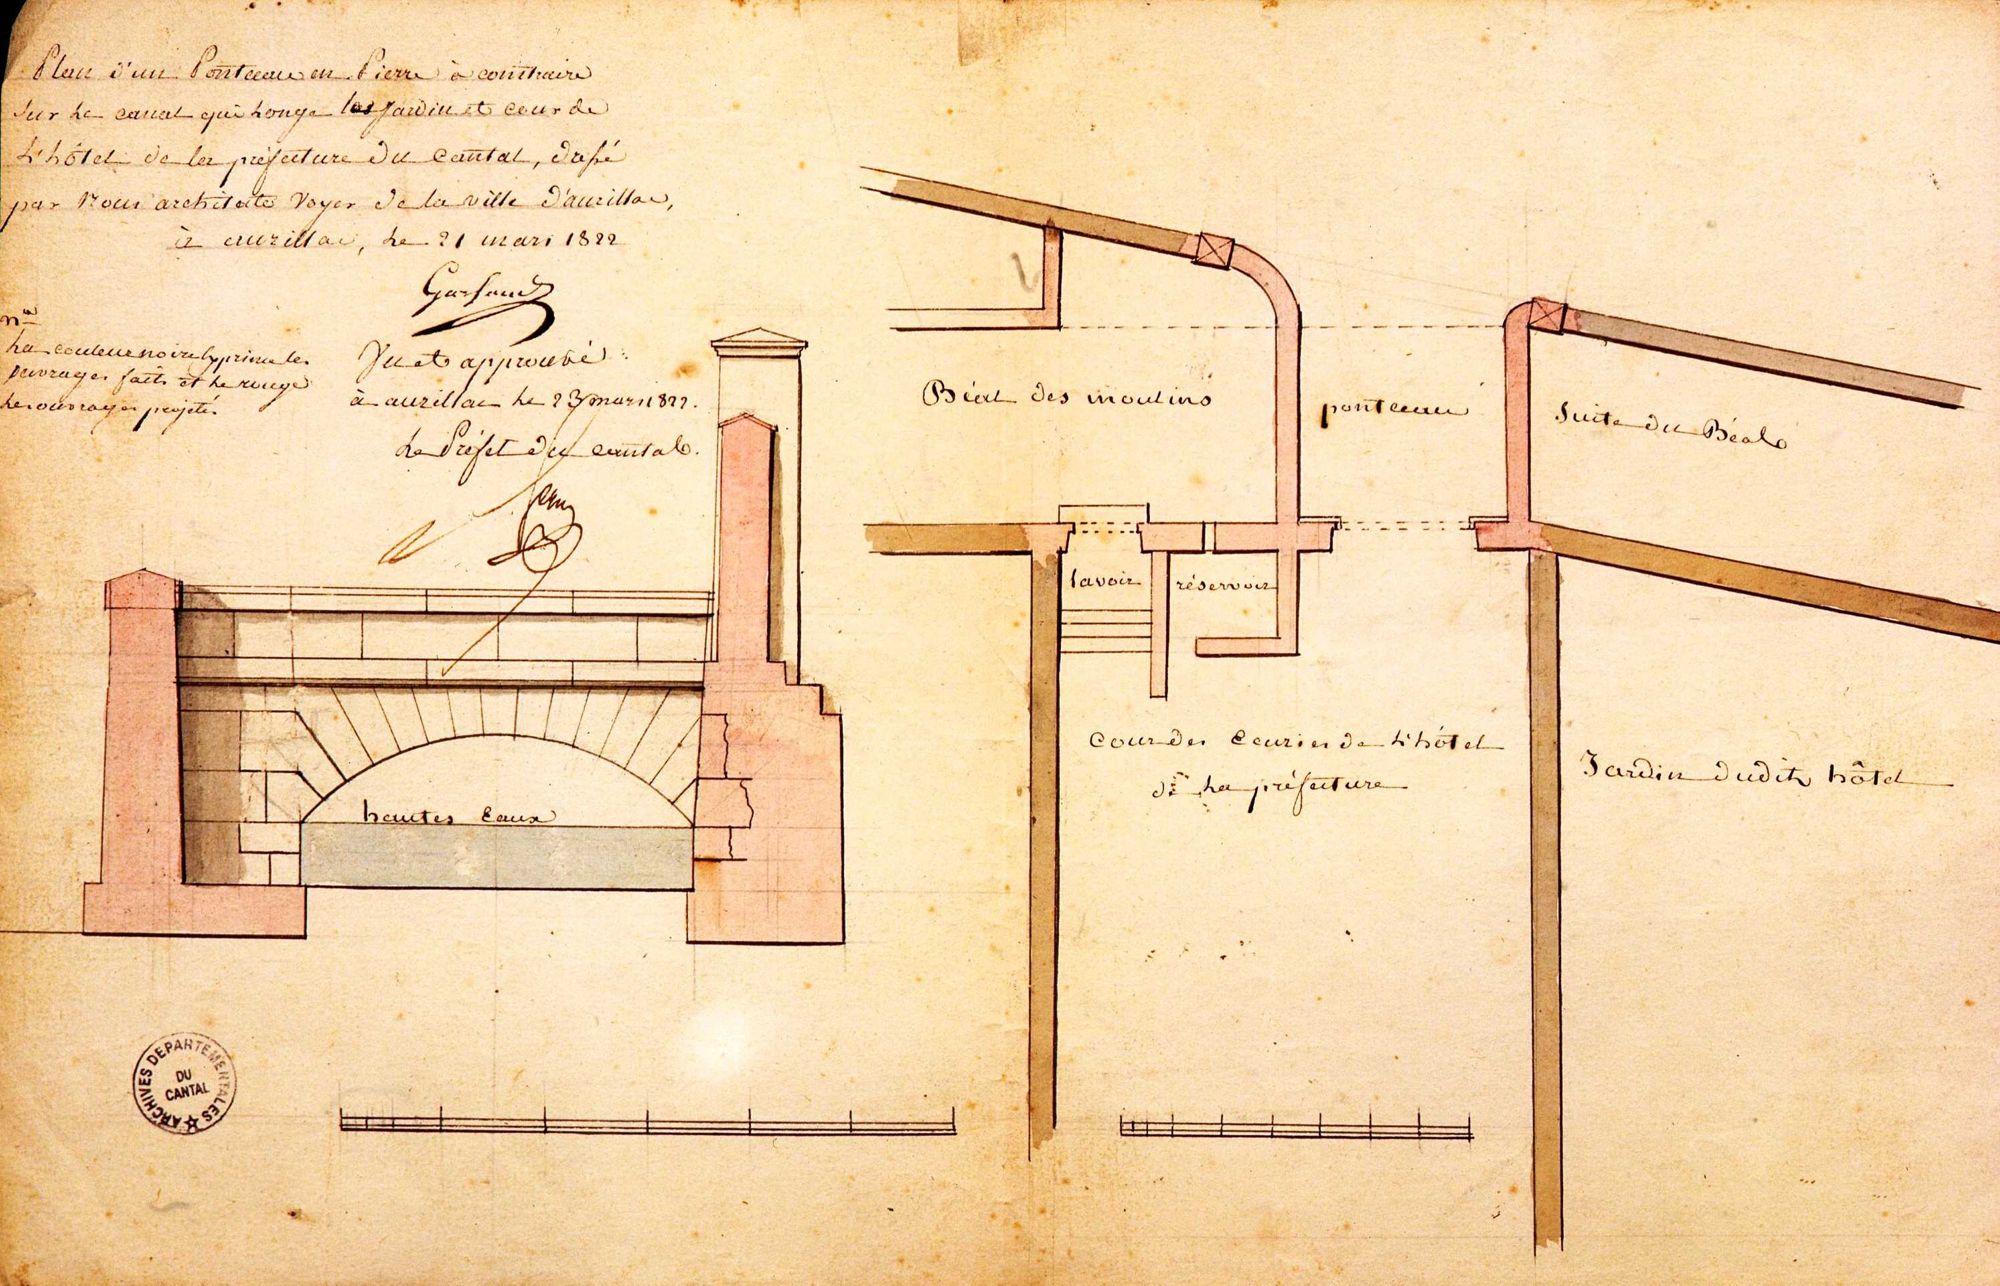 Plan d'un Ponteau en Pierre à construire
sur le canal qui longe les jardin et cour de
l'hôtel de la préfecture du cantal, dressé
par Nous architecte Voyer de la ville d'aurillac,
à aurillac, le 21 mars 1822
nta
la couleur noire exprime les
ouvrages faits et le rouge
les ouvrages projetés
Vu et approuvé
à aurillac le 23 mars 1822.
le Préfet du cantal.
hautes Eaux
Béal des moulins
ponteau
Suite du Béal
lavoir
réservoir
Cour des Ecuries de l'hôtel
de la préfecture
Jardin dudit hôtel
ARCHIVES DEPARTEMENTALES
DU
CANTAL